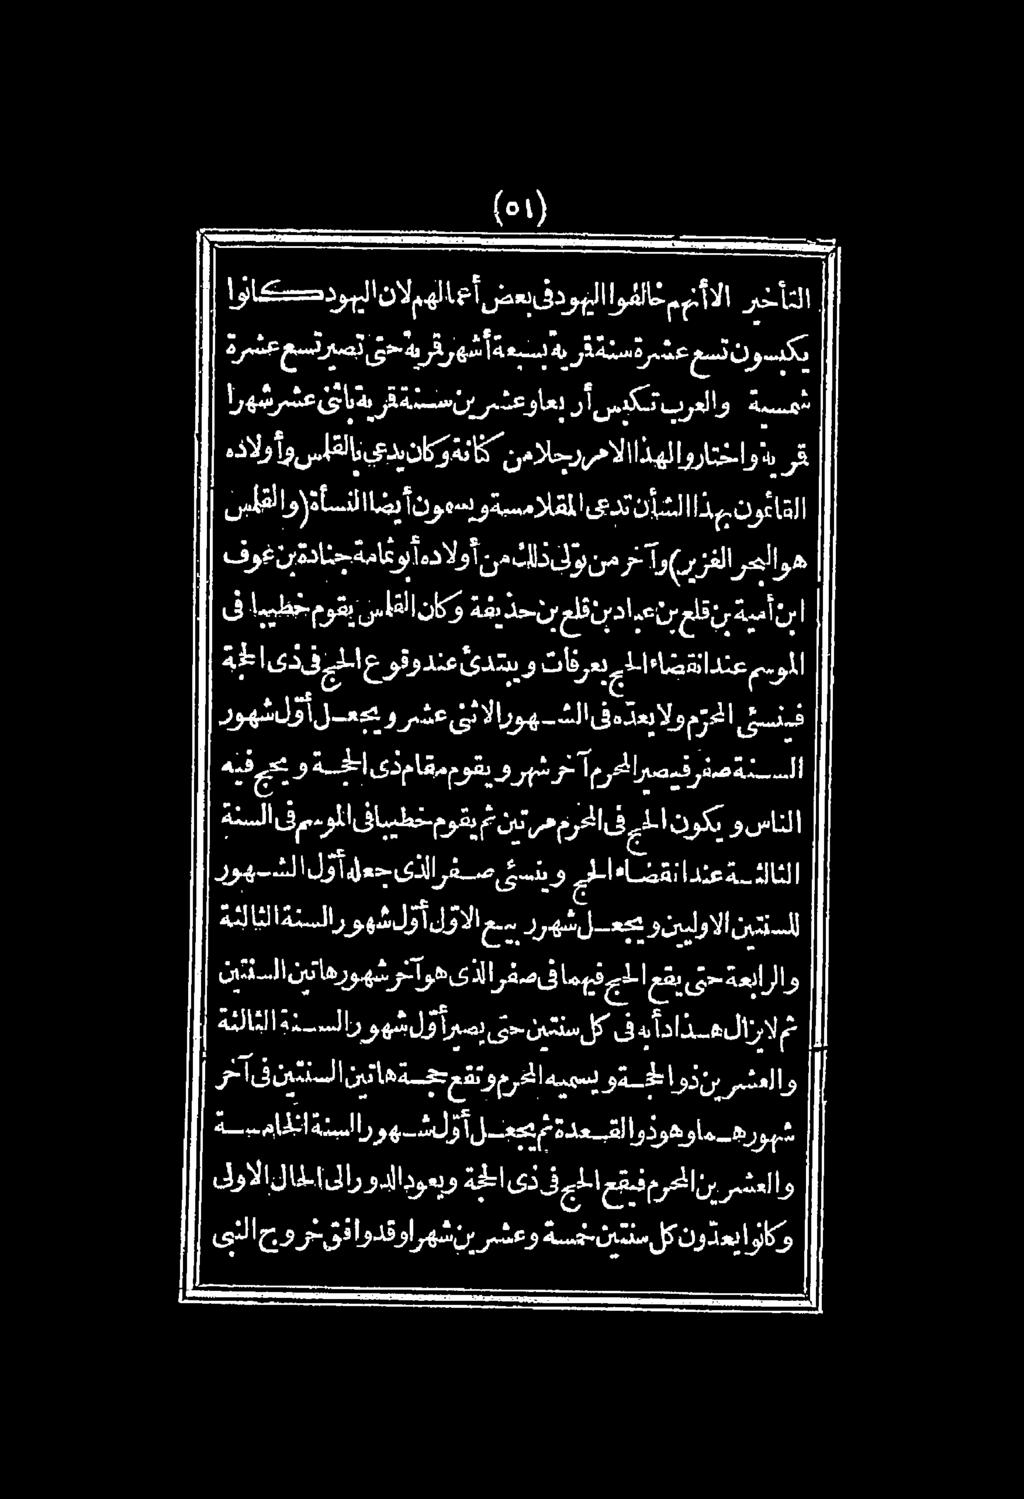 (٥١)
التأخير الا أنهم خالفوا اليهود في بعض أعمالهم لان اليهود كانوا
يكبسون تسع عشرة سنة قرية بسبعة أشهر قرية حتى تصير تسع عشرة
شمسية والعرب تكبس أربعا وعشرين سنة قرية باثنى عشر شهرا
قرية واختاروا لهذا الامر رجلا من كنانة وكان يدعى بالقلس وأولاده
القائمون بهذا الشأن تدعى القلامسة ويسمون أيضا النسأة (والقلس
هو البحر الغزير) وآخر من تولى ذلك من أولاده أبو ثمامة جنادة بن عوف
ابن أمية بن قلع بن عباد بن قلع بن حذيفة وكان القلس يقوم خطيبا فى
الموسم عند انقضاء الحج بعرفات ويبتدئ عند وقوع الحج فى ذى الحجة
فينسئ المحرم ولا يعده فى الشهور الاثنى عشر ويجعل أول شهور
السنة صفر فيصير المحرم آخر شهر ويقوم مقام ذى الحجة ويحج فيه
الناس ويكون الحج فى المحرم مرتين ثم يقوم خطيبا فى الموسم فى السنة
الثالثة عند انقضاء الحج وينسئ صفر الذى جعله أول الشهور
للسنتين الاوليين ويجعل شهر ربيع الاول أول شهور السنة الثالثة
والرابعة حتى يقع الحج فيهما فى صفر الذى هو آخر شهور هاتين السنتين
ثم لا يزال هذا دأبه فى كل سنتين حتى يصير أول شهور السنة الثالثة
والعشرين ذو الحجة ويسميه المحرم وتقع حجة هاتين السنتين فى آخر
شهورهما وهو ذو القعدة ثم يجعل أول شهور السنة الخامسة
والعشرين المحرم فيقع الحج فى ذى الحجة ويعود الدور الى الحال الاولى
وكانوا يعدون كل سنتين خمسة وعشرين شهرا وقد وافق خروج النبى